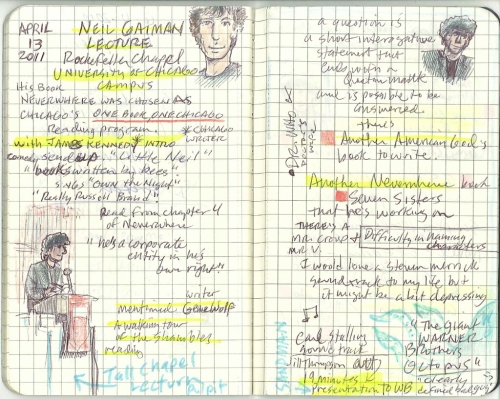 APRIL
13
2011
NEIL GAIMAN
LECTURE
Rockefeller Chapel
UNIVERSITY of CHICAGO
CAMPUS
His Book
NEVERWHERE WAS CHOSEN AS
CHICAGO'S ONE BOOK, ONE CHICAGO
Reading program.
* CHICAGO
WRITER
with JAMES KENNEDY INTRO
comedy send up "Little Neil"
"books written by bees"
SINGS "Own the Night"
"Really Russell Brand"
Read from chapter 4
of Neverwhere
"he's a corporate
entity in his
own right"
writer
mentioned Gene Wolf
A walking tour
of the Shambles
reading
Tall Chapel
Lecture
a question is
a short interrogative
statement that
ends with a
Question Mark
and is possible to be
answered.
DR. WHO
There's
Another American Gods
book to write.
Another Neverwhere book
Seven Sisters
that he's working on
THERE'S A
MR. CROUP &
MR. V.
Difficulty in naming
characters
I would love a Steven Merrick
sound track to my life but
it might be a bit depressing
SANDMAN
Carl Stalling
sound track
Jill Thompson
19 minutes
presentation TO WB
"The Giant
WARNER
Brothers
Octopus"
"clearly
defined